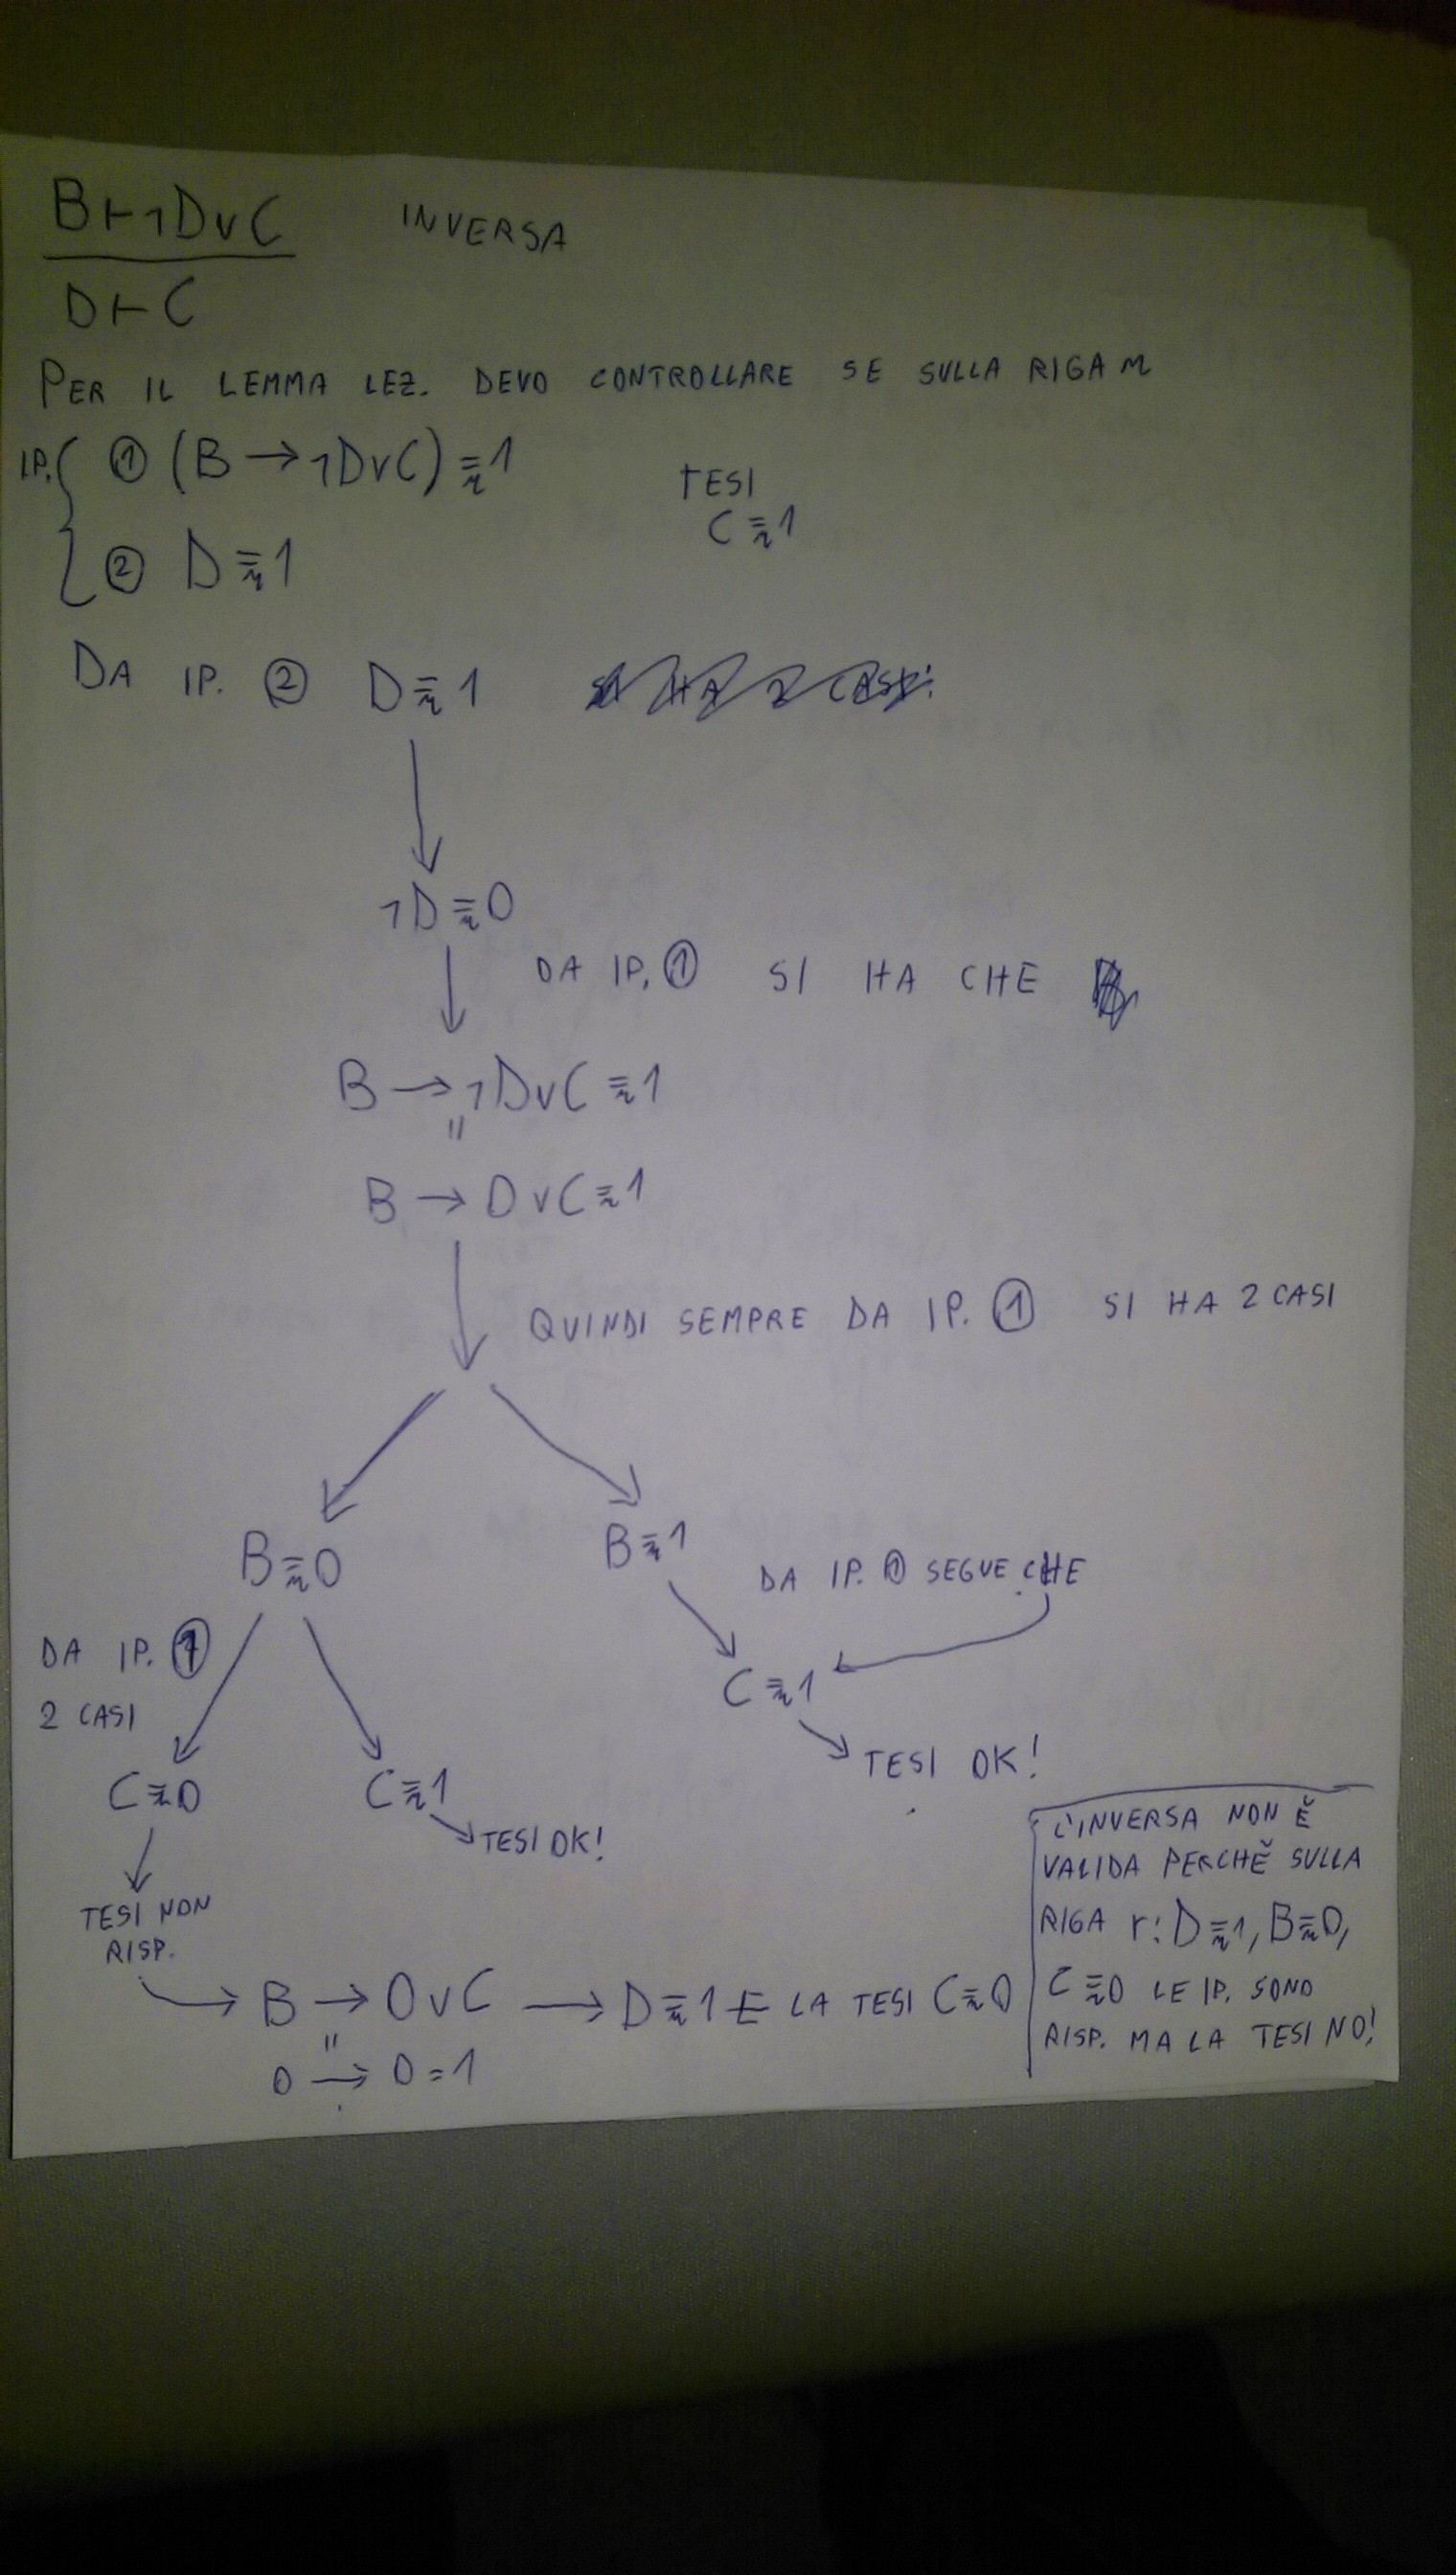 B⊢¬D∨C INVERSA
D⊢C
PER IL LEMMA LEZ. DEVO CONTROLLARE SE SULLA RIGA r
IP. { ① (B → ¬D∨C) ≡r 1
TESI
C ≡r 1
② D ≡r 1
DA IP. ② D ≡r 1
¬D ≡r 0
DA IP. ① SI HA CHE
B → ¬D∨C ≡r 1
=
B → 0∨C ≡r 1
QUINDI SEMPRE DA IP. ① SI HA 2 CASI
B ≡r 0
B ≡r 1
DA IP. ① SEGUE CHE
DA IP. ①
2 CASI
C ≡r 1
TESI OK!
C ≡r 0
C ≡r 1
TESI OK!
TESI NON
RISP.
B → 0∨C → D ≡r 1 E LA TESI C ≡r 0
=
0 → 0 = 1
L'INVERSA NON È
VALIDA PERCHÈ SULLA
RIGA r: D ≡r 1, B ≡r 0,
C ≡r 0 LE IP. SONO
RISP. MA LA TESI NO!